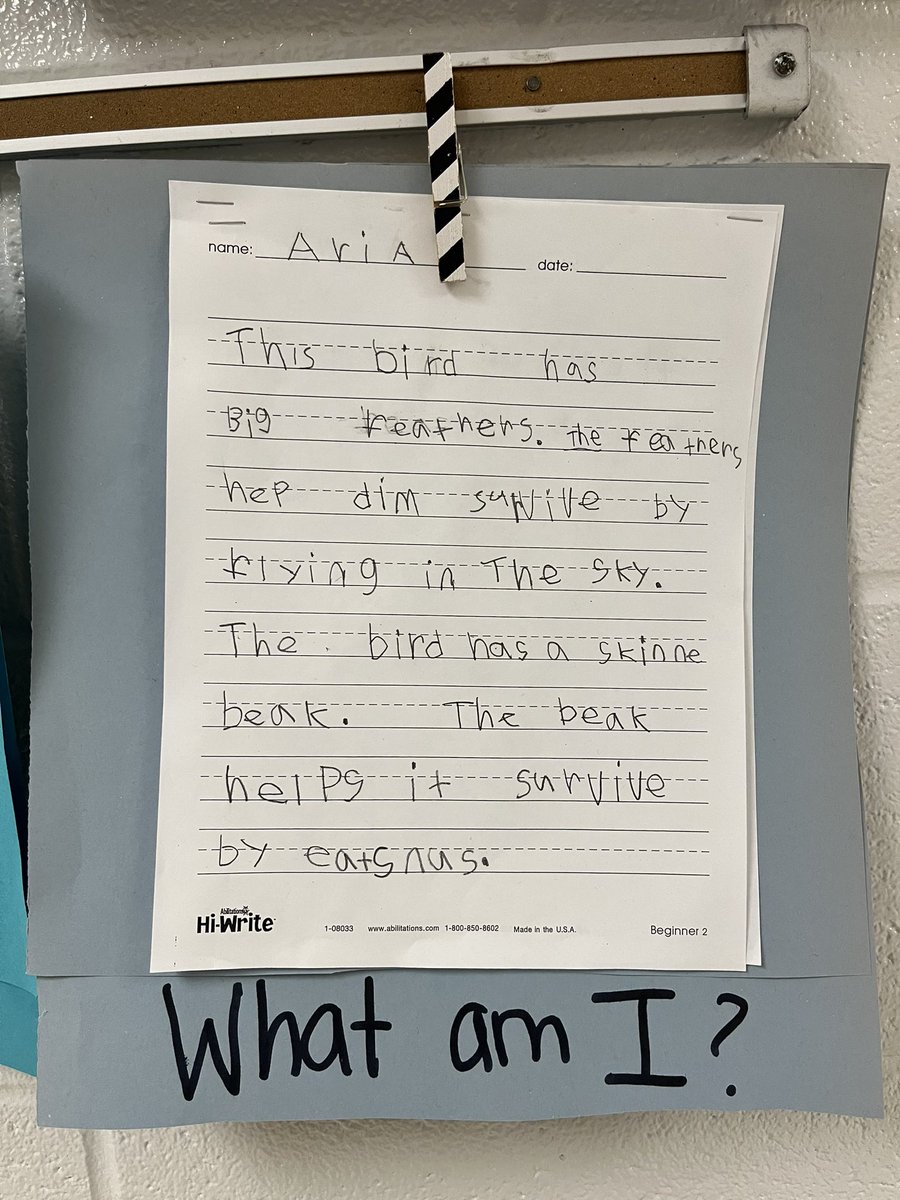 name: AriA date:
This bird has
Big feathers. The feathers
hep dim survive by
flying in The sky.
The bird has a skinne
beak. The beak
helps it survive
by eatsnus.
Abilitations
Hi-Write
1-08033 www.abilitations.com 1-800-850-8602 Made in the U.S.A. Beginner 2
What am I?